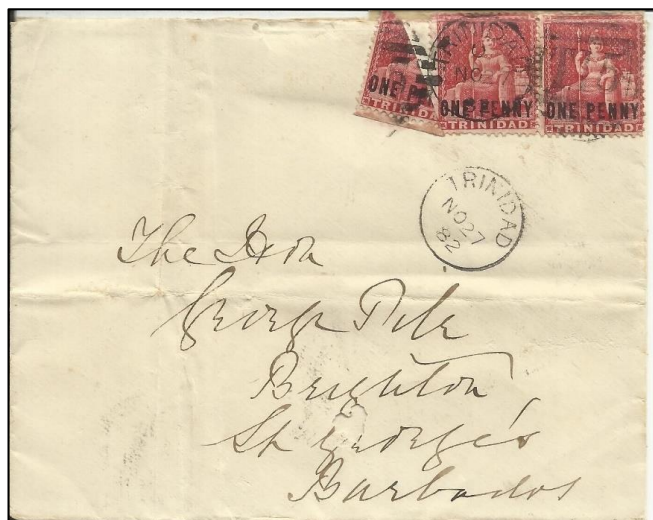 ONE P ONE PENNY ONE PENNY
TRINIDAD TRINIDAD TRINIDAD
TRINIDAD
NO 27
82
The Hon
George Pile
Brighton
St George's
Barbados